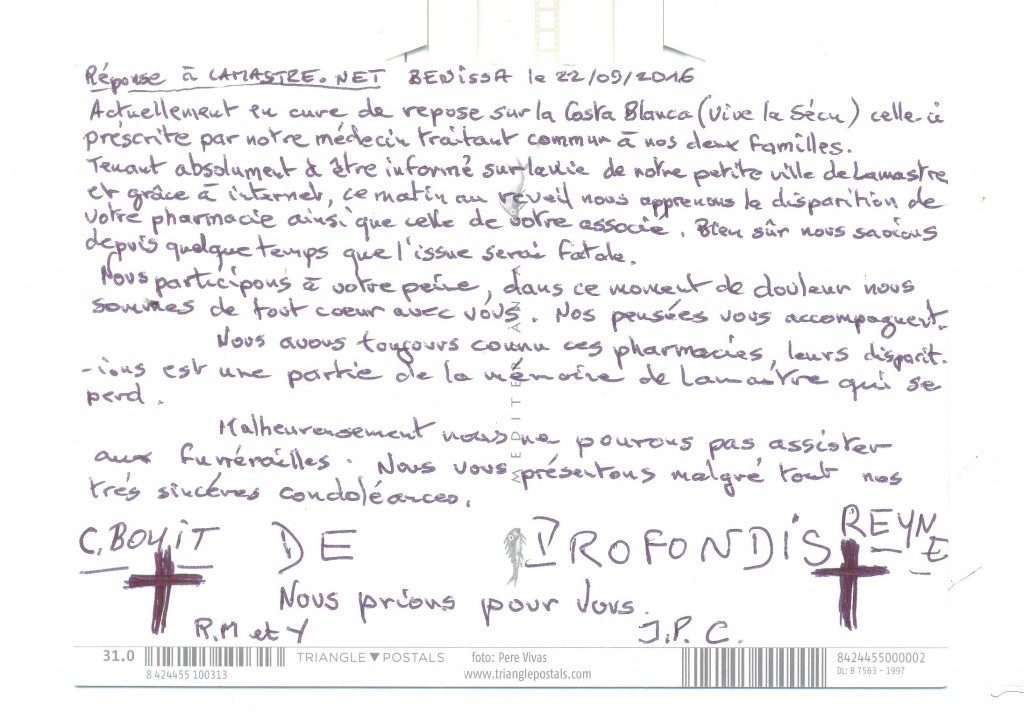 Réponse à LAMASTRE.NET BENISSA le 22/09/2016
Actuellement en cure de repose sur la Costa Blanca (Vive la Sécu) celle-ci
préscrite par notre médecin traitant commun à nos deux familles.
Tenant absolument à être informé sur la vie de notre petite ville de Lamastre
et grâce à internet, ce matin au reveil nous apprenons la disparition de
votre pharmacie ainsi que celle de votre associé. Bien sûr nous savions
depuis quelque temps que l'issue serai fatale.
Nous participons à votre peine, dans ce moment de douleur nous
sommes de tout coeur avec vous. Nos pensées vous accompagnent.
Nous avons toujours connu ces pharmacies, leurs disparit.
-ions est une partie de la mémoire de Lamastre qui se
perd.
Malheureusement nous ne pourons pas assister
aux funérailles. Nous vous présentons malgré tout nos
trés sincères condoléances.
C. BOUIT DE PROFONDIS REYNE
Nous prions pour vous.
R.M et Y J.P.C.
MEDITERRANIA
31.0 TRIANGLE▼POSTALS foto: Pere Vivas 8424455000002
8 424455 100313 www.trianglepostals.com DL: B 7563 - 1997